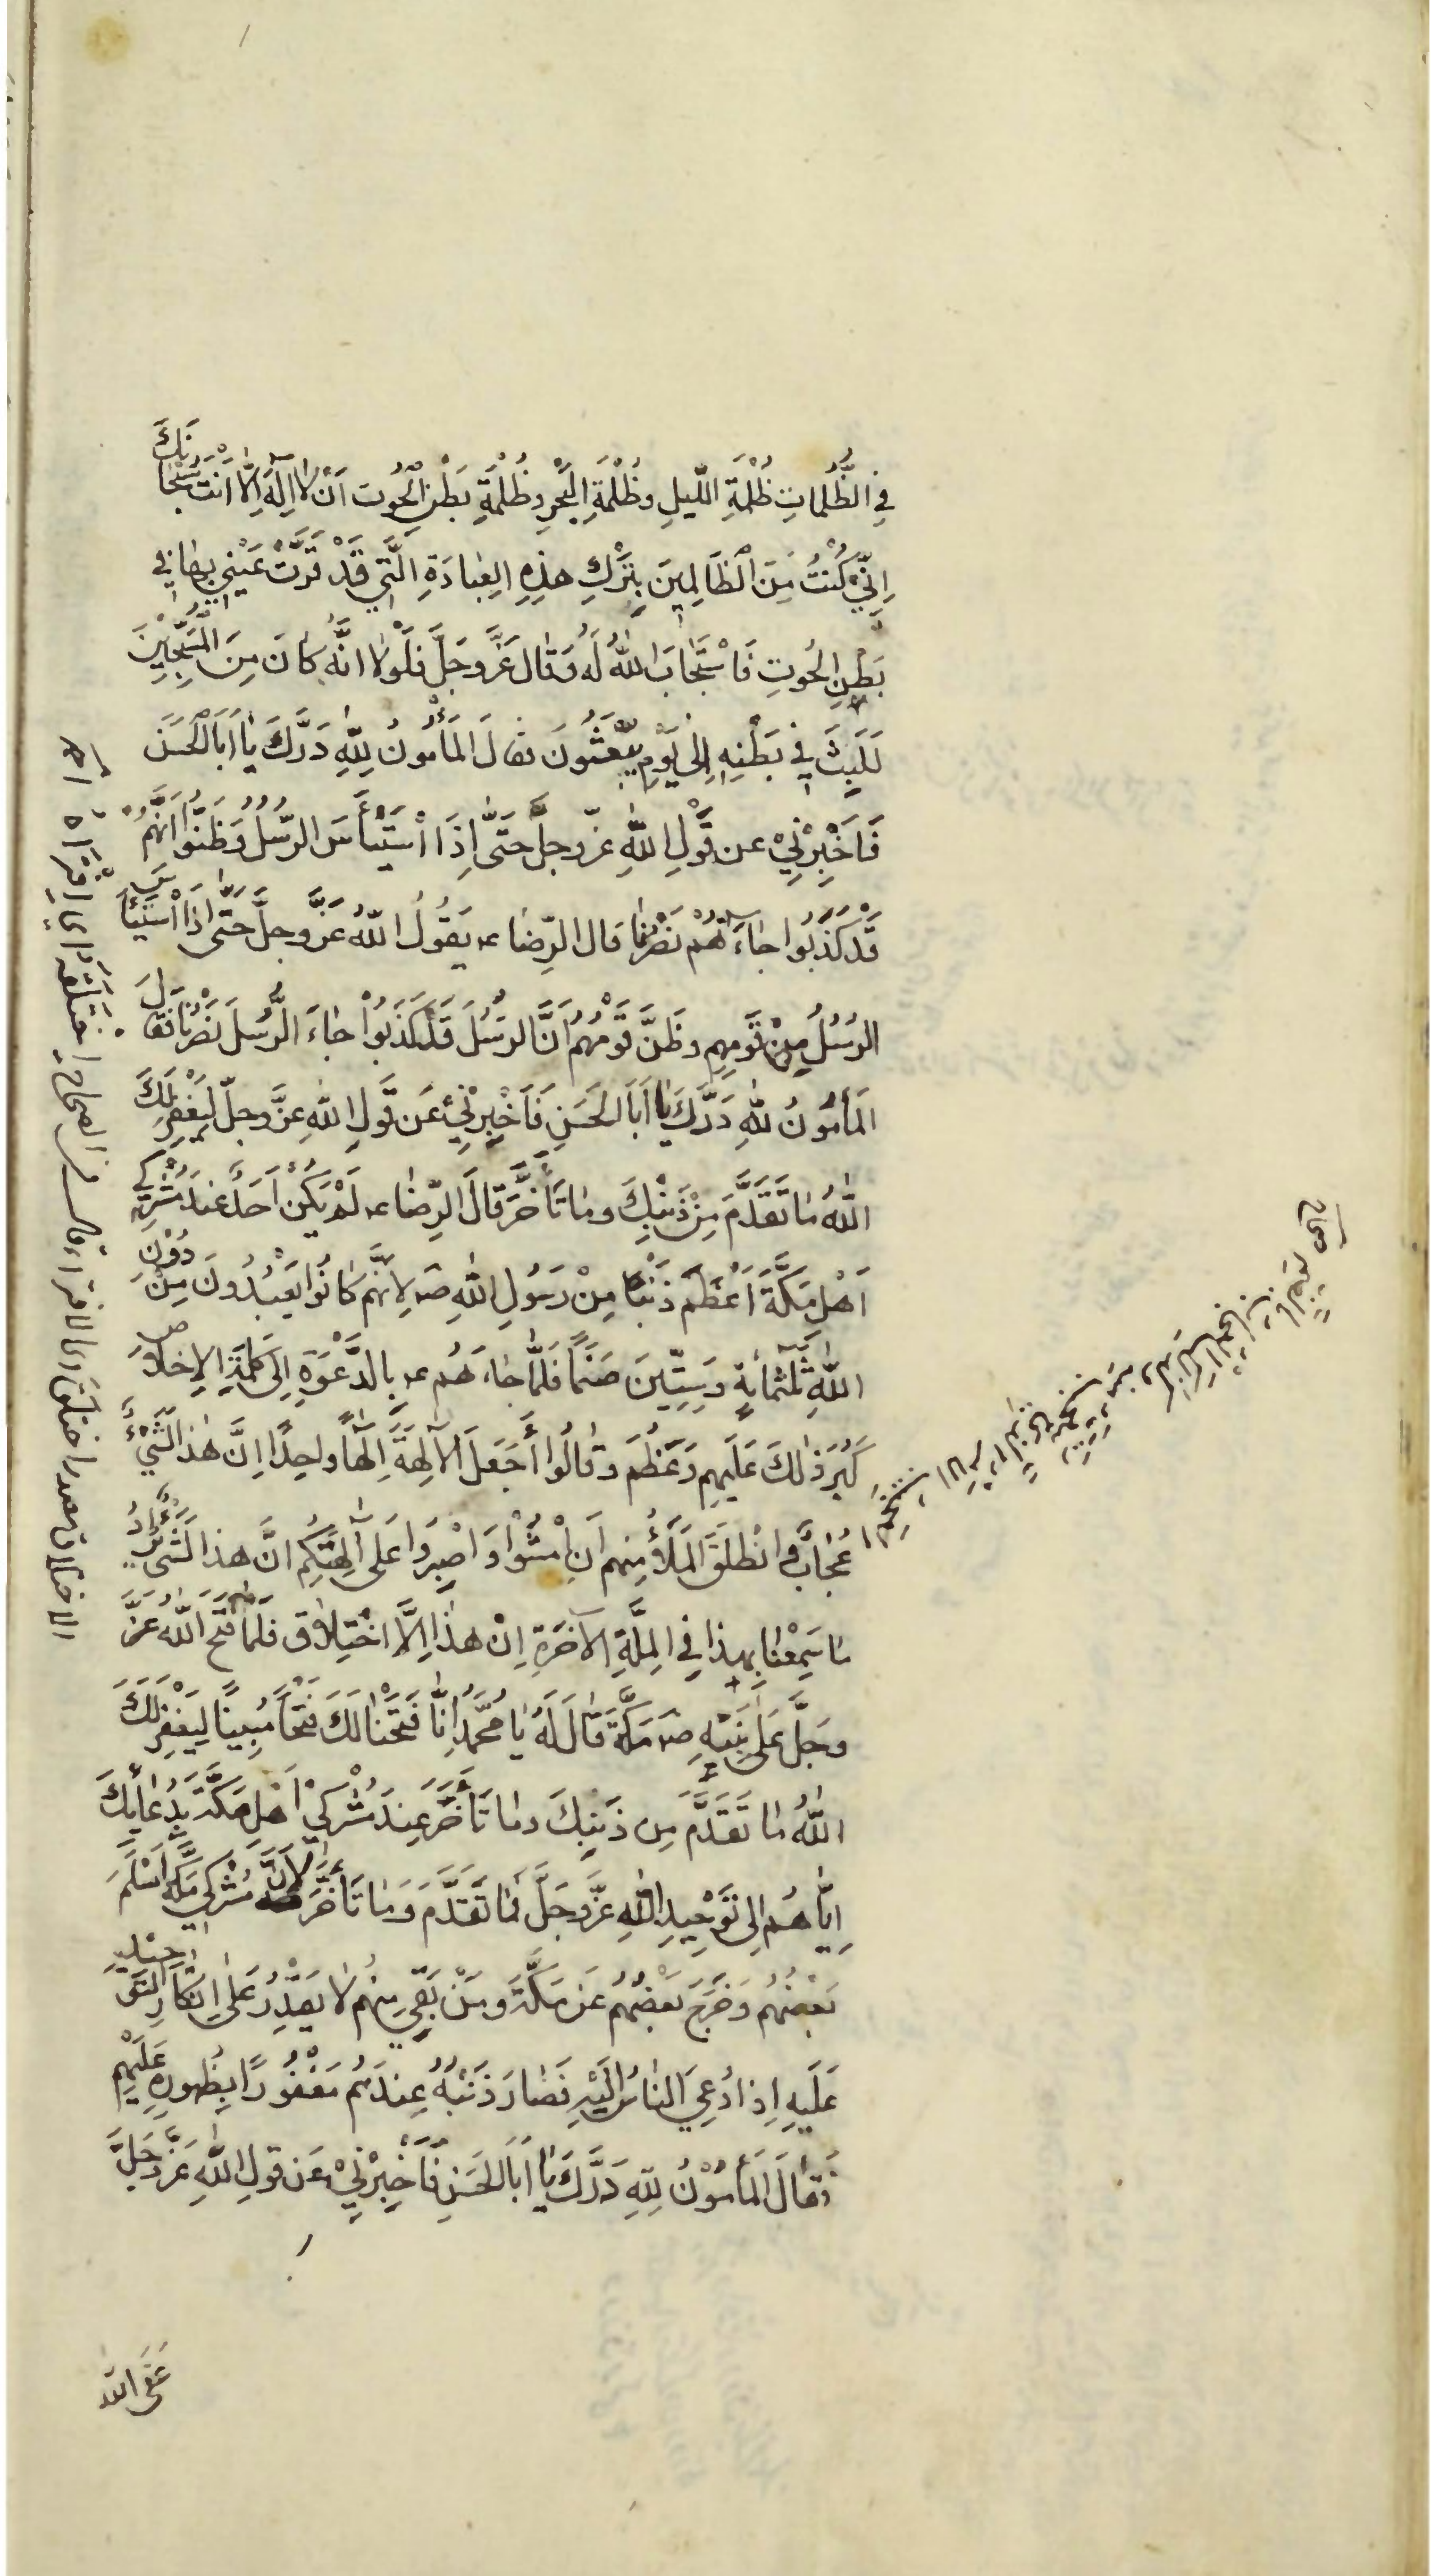 فِي الظُّلُمَاتِ ظُلْمَةِ اللّيلِ وظُلْمَةِ البَحْرِ وظُلْمَةِ بَطْنِ الْحُوتِ اَنْ لا اِلٰهَ اِلّا اَنْتَ سُبْحَانَكَ
اِنّي كُنْتُ مِنَ الظَالِمِينَ بِتَرْكِ هٰذِهِ العِبَادَةِ الَّتِي قَدْ قَرَّتْ عَيْنِي بِهَا فِي
بَطْنِ الحُوتِ فَاسْتَجَابَ اللّٰهُ لَهُ وَقَالَ عَزَّ وَجَلَّ فَلَوْلَا انَّهُ كَانَ مِنَ المُسَبِّحِيْنَ
لَلَبِثَ فِي بَطْنِهِ اِلٰى يَوْمِ يُبْعَثُونَ فقالَ المَأْمُونُ لِلّٰهِ دَرُّكَ يَا اَبَا الْحَسَنِ
فَاَخْبِرْنِيْ عن قَوْلِ اللّٰهِ عزّ وجلَّ حَتَّى اِذَا اسْتَيْأَسَ الرّسُلُ وَظَنُّوا اَنَّهُمْ
قَدْ كُذِبُوا جَاءَهُمْ نَصْرُنَا قال الرِّضا ع يَقُولُ اللّٰهُ عَزَّ وجلَّ حَتَّى اِذَا اسْتَيْأَسَ
الرُسُلُ مِنْ قَوْمِهِم وظَنَّ قَوْمُهُم اَنَّ الرسُلَ قَدْ كَذَبُوْا جَاءَ الرُّسُلَ نَصْرُنَا فَقَالَ
المَأْمُونُ لِلّٰهِ دَرُّكَ يَا اَبَا الحَسَنِ فَاَخْبِرْنِيْ عَن قَوْلِ اللّٰهِ عزَّ وجلّ لِيَغْفِرَ لَكَ
اللّٰهُ مَا تَقَدَّمَ مِنْ ذَنْبِكَ وما تَأَخَّرَ قالَ الرِّضا ع لَمْ يَكُنْ اَحَدٌ عِندَ مُشْرِكِي
اَهْلِ مَكَّةَ اَعْظَمَ ذَنْبًا مِنْ رَسُولِ اللّٰهِ ص لِاَنَّهُم كَانُوا يَعْبُدُونَ مِنْ دُوْنِ
اللّٰهِ ثَلٰثَمِائةٍ وَسِتِّينَ صَنَمًا فَلَمَّا جَاءَهُم ع بِالدَّعْوَةِ اِلَى كَلِمَةِ الاِخلَاصِ
كَبُرَ ذٰلكَ عَلَيهِم وَعَظُمَ وَقَالُوا أَجَعَلَ الآلِهَةَ اِلٰهًا واحِدًا اِنَّ هٰذَا لَشَيْءٌ
عُجَابٌ وَانْطَلَقَ المَلَأُ مِنهم اَنِ امْشُوْا وَاصْبِرُوا عَلَى آلِهَتِكُم انَّ هذا لَشَيْءٌ يُرَادُ
مَا سَمِعْنَا بِهذَا فِي المِلَّةِ الآخَرَةِ اِنْ هٰذَا اِلَّا اخْتِلَاقٌ فَلَمَّا فَتَحَ اللّٰهُ عَزَّ
وجَلَّ عَلَى نَبِيّهِ ص مَكَّةَ قَالَ لَهُ يَا مُحَمَّدُ اِنَّا فَتَحْنَا لَكَ فَتْحًا مُبِينًا لِيَغْفِرَ لَكَ
اللّٰهُ مَا تَقَدَّمَ مِن ذَنبِكَ وما تَأَخَّرَ عِندَ مُشْرِكِيْ اَهْلِ مَكَّةَ بِدُعَائِكَ
اِيَّاهُم اِلى تَوْحِيدِ اللّٰهِ عَزَّ وجَلَّ فِيمَا تَقَدَّمَ وَمَا تَأَخَّرَ لِاَنَّ مُشْرِكِي مَكَّةَ اَسْلَمَ
بَعْضُهُم وَخَرَجَ بَعْضُهُم عَن مَكَّةَ وَمَنْ بَقِيَ مِنْهُم لَا يَقْدِرُ عَلَى اِنْكَارِ التَوْحِيْدِ
عَلَيهِ اِذا دُعِيَ النَاسُ اِلَيْهِ فَصَارَ ذَنْبُهُ عِندَهُم مَغْفُورًا بِظُهورِهِ عَلَيْهِم
فَقَالَ المَأمُوْنُ لِلّٰهِ دَرُّكَ يَا اَبَا الحَسَنِ فَاَخْبِرْنِيْ عَن قولِ اللّٰهِ عَزَّ وجَلَّ
عَفَى اللّٰهُ